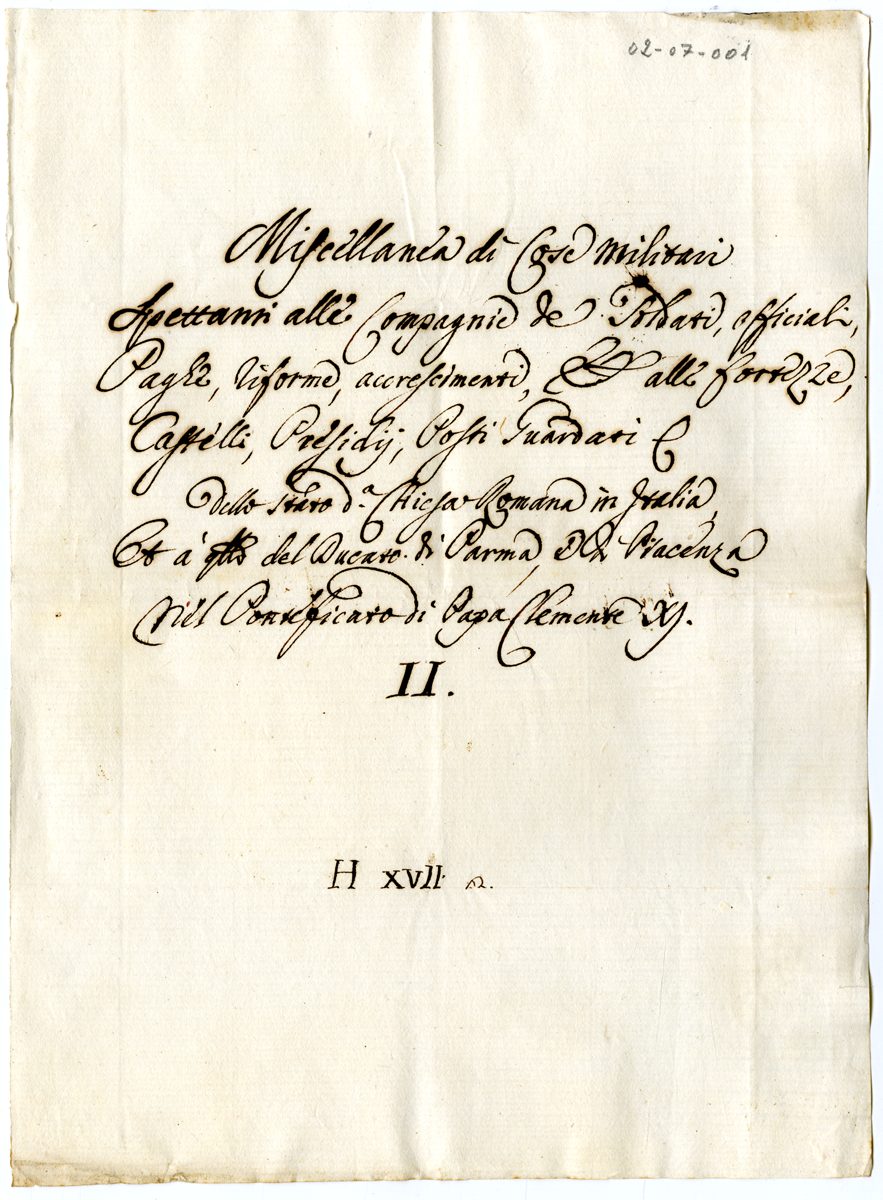 02-07-001
Miscellanea di Cose Militari
Spettanti alle Compagnie de Soldati, officiali,
Paghe, riforme, accrescimenti, & alle fortezze,
Castelli, Presidij, Posti Guardati
dello Stato d.ª Chiesa Romana in Italia,
Et à qllo del Ducato di Parma, e di Piacenza
Nel Pontificato di Papa Clemente XJ.
II.
H XVII. 2.